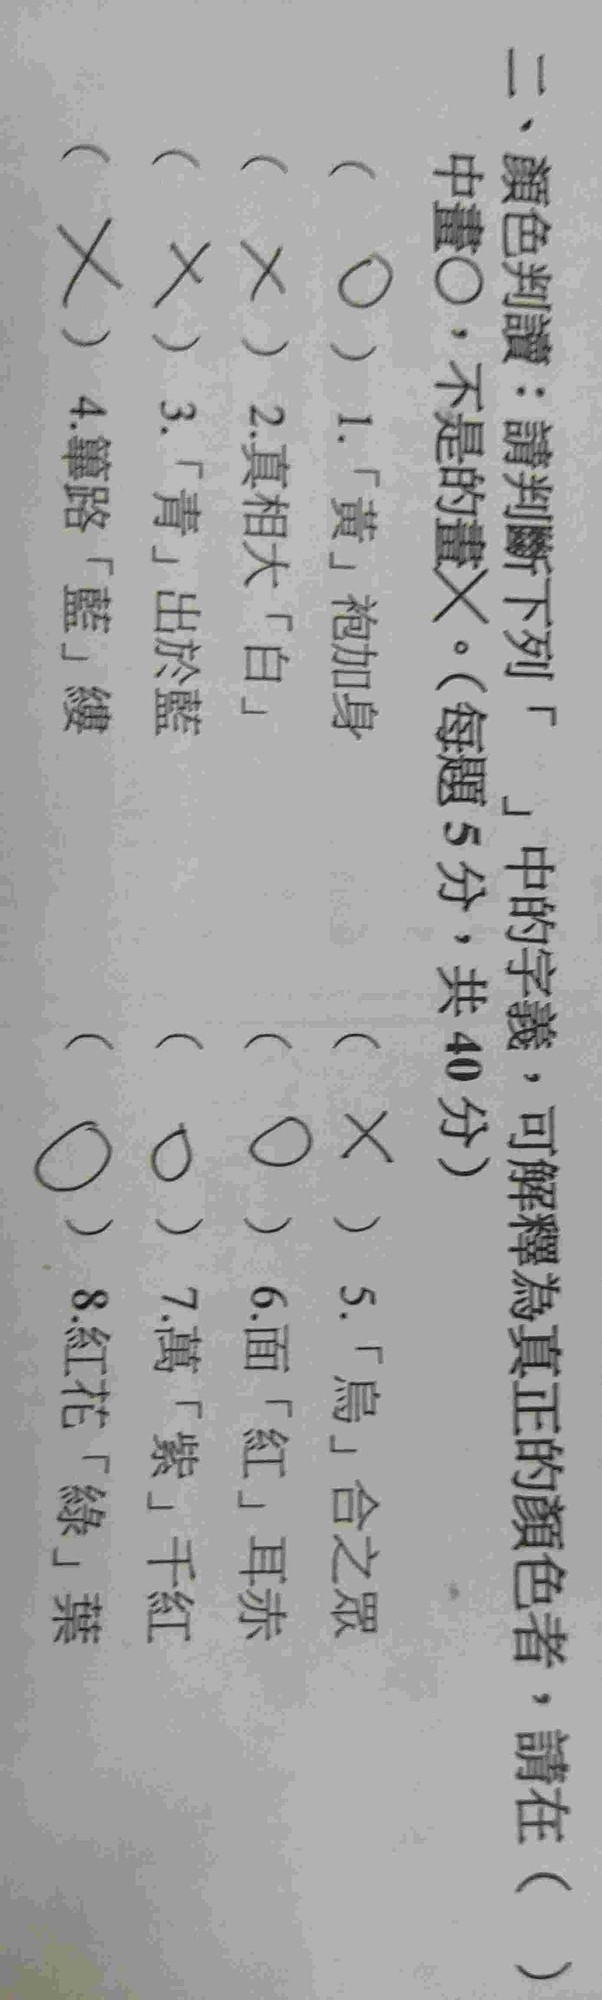 二、顏色判讀：請判斷下列「　」中的字義，可解釋為真正的顏色者，請在（　）
中畫○，不是的畫╳。（每題5分，共40分）
（ O ）1.「黃」袍加身　（ X ）5.「烏」合之眾
（ X ）2.真相大「白」　（ O ）6.面「紅」耳赤
（ X ）3.「青」出於藍　（ O ）7.萬「紫」千紅
（ X ）4.篳路「藍」縷　（ O ）8.紅花「綠」葉